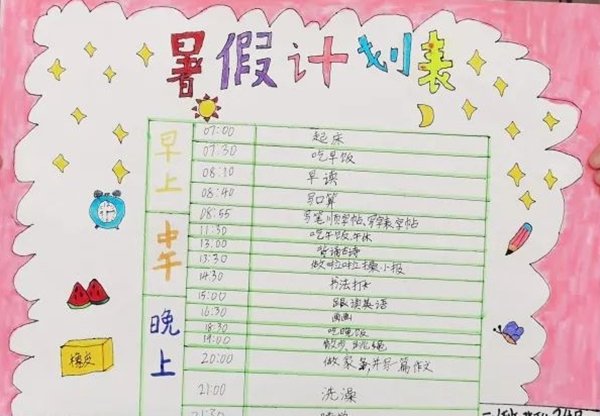 暑假计划表
早上
07:00 起床
07:30 吃早饭
08:10 早读
08:40 写口算
08:55 写笔顺字帖,写字表字帖
中午
11:30 吃午饭,午休
13:00 背诵古诗
13:30 做啦啦操小报
14:30 书法打卡
晚上
15:00 跟读英语
16:30 画画
18:30 吃晚饭
19:00 散步 跳绳
20:00 做家务,并写一篇作文
21:00 洗澡
21:30
橡皮